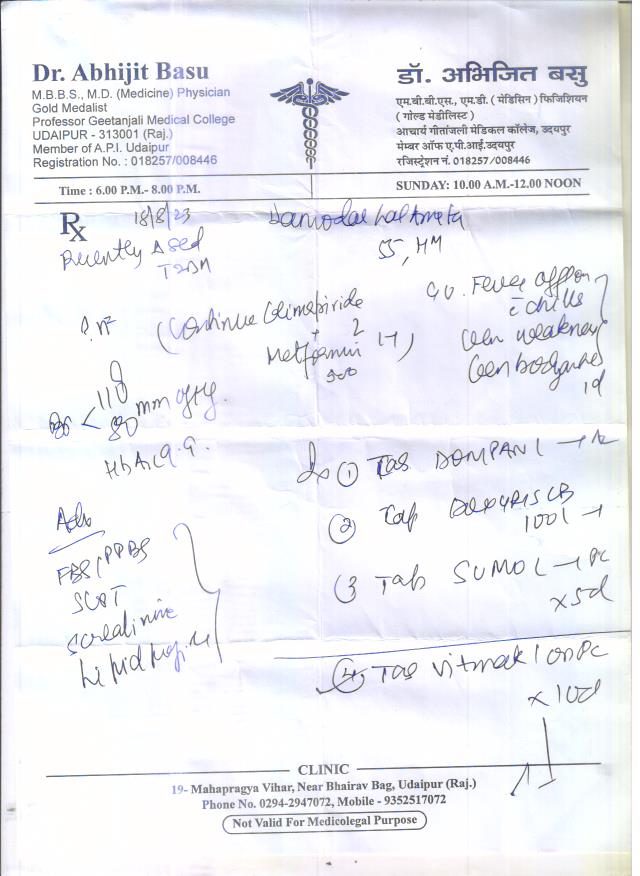 Dr. Abhijit Basu
M.B.B.S., M.D. (Medicine) Physician
Gold Medalist
Professor Geetanjali Medical College
UDAIPUR - 313001 (Raj.)
Member of A.P.I. Udaipur
Registration No. : 018257/008446
डॉ. अभिजित बसु
एम.बी.बी.एस., एम.डी. ( मेडिसिन ) फिजिशियन
( गोल्ड मेडीलिस्ट )
आचार्य गीतांजली मेडिकल कॉलेज, उदयपुर
मेम्बर ऑफ ए.पी.आई.उदयपुर
रजिस्ट्रेशन नं. 018257/008446
Time : 6.00 P.M.- 8.00 P.M.
SUNDAY: 10.00 A.M.-12.00 NOON
Rx
18/8/23
Damodar Lal Ameta
55,
Recently
T2DM
(Continue Glimepiride
+ 2
Metformin
500
Fever off/on
c chills
Gen weakness
Gen bodyache
110
80 mm of Hg.
HbA1c 9.9.
Adv
FBS/PPBS
SGOT
S creatinine
Lipid profile
① Tab DOMPAN 1
②
100 1
3 Tab SUMO 1 → PC
x 5d
④ Tab Vitmak 1 on PC
x 10d
CLINIC
19- Mahapragya Vihar, Near Bhairav Bag, Udaipur (Raj.)
Phone No. 0294-2947072, Mobile - 9352517072
Not Valid For Medicolegal Purpose